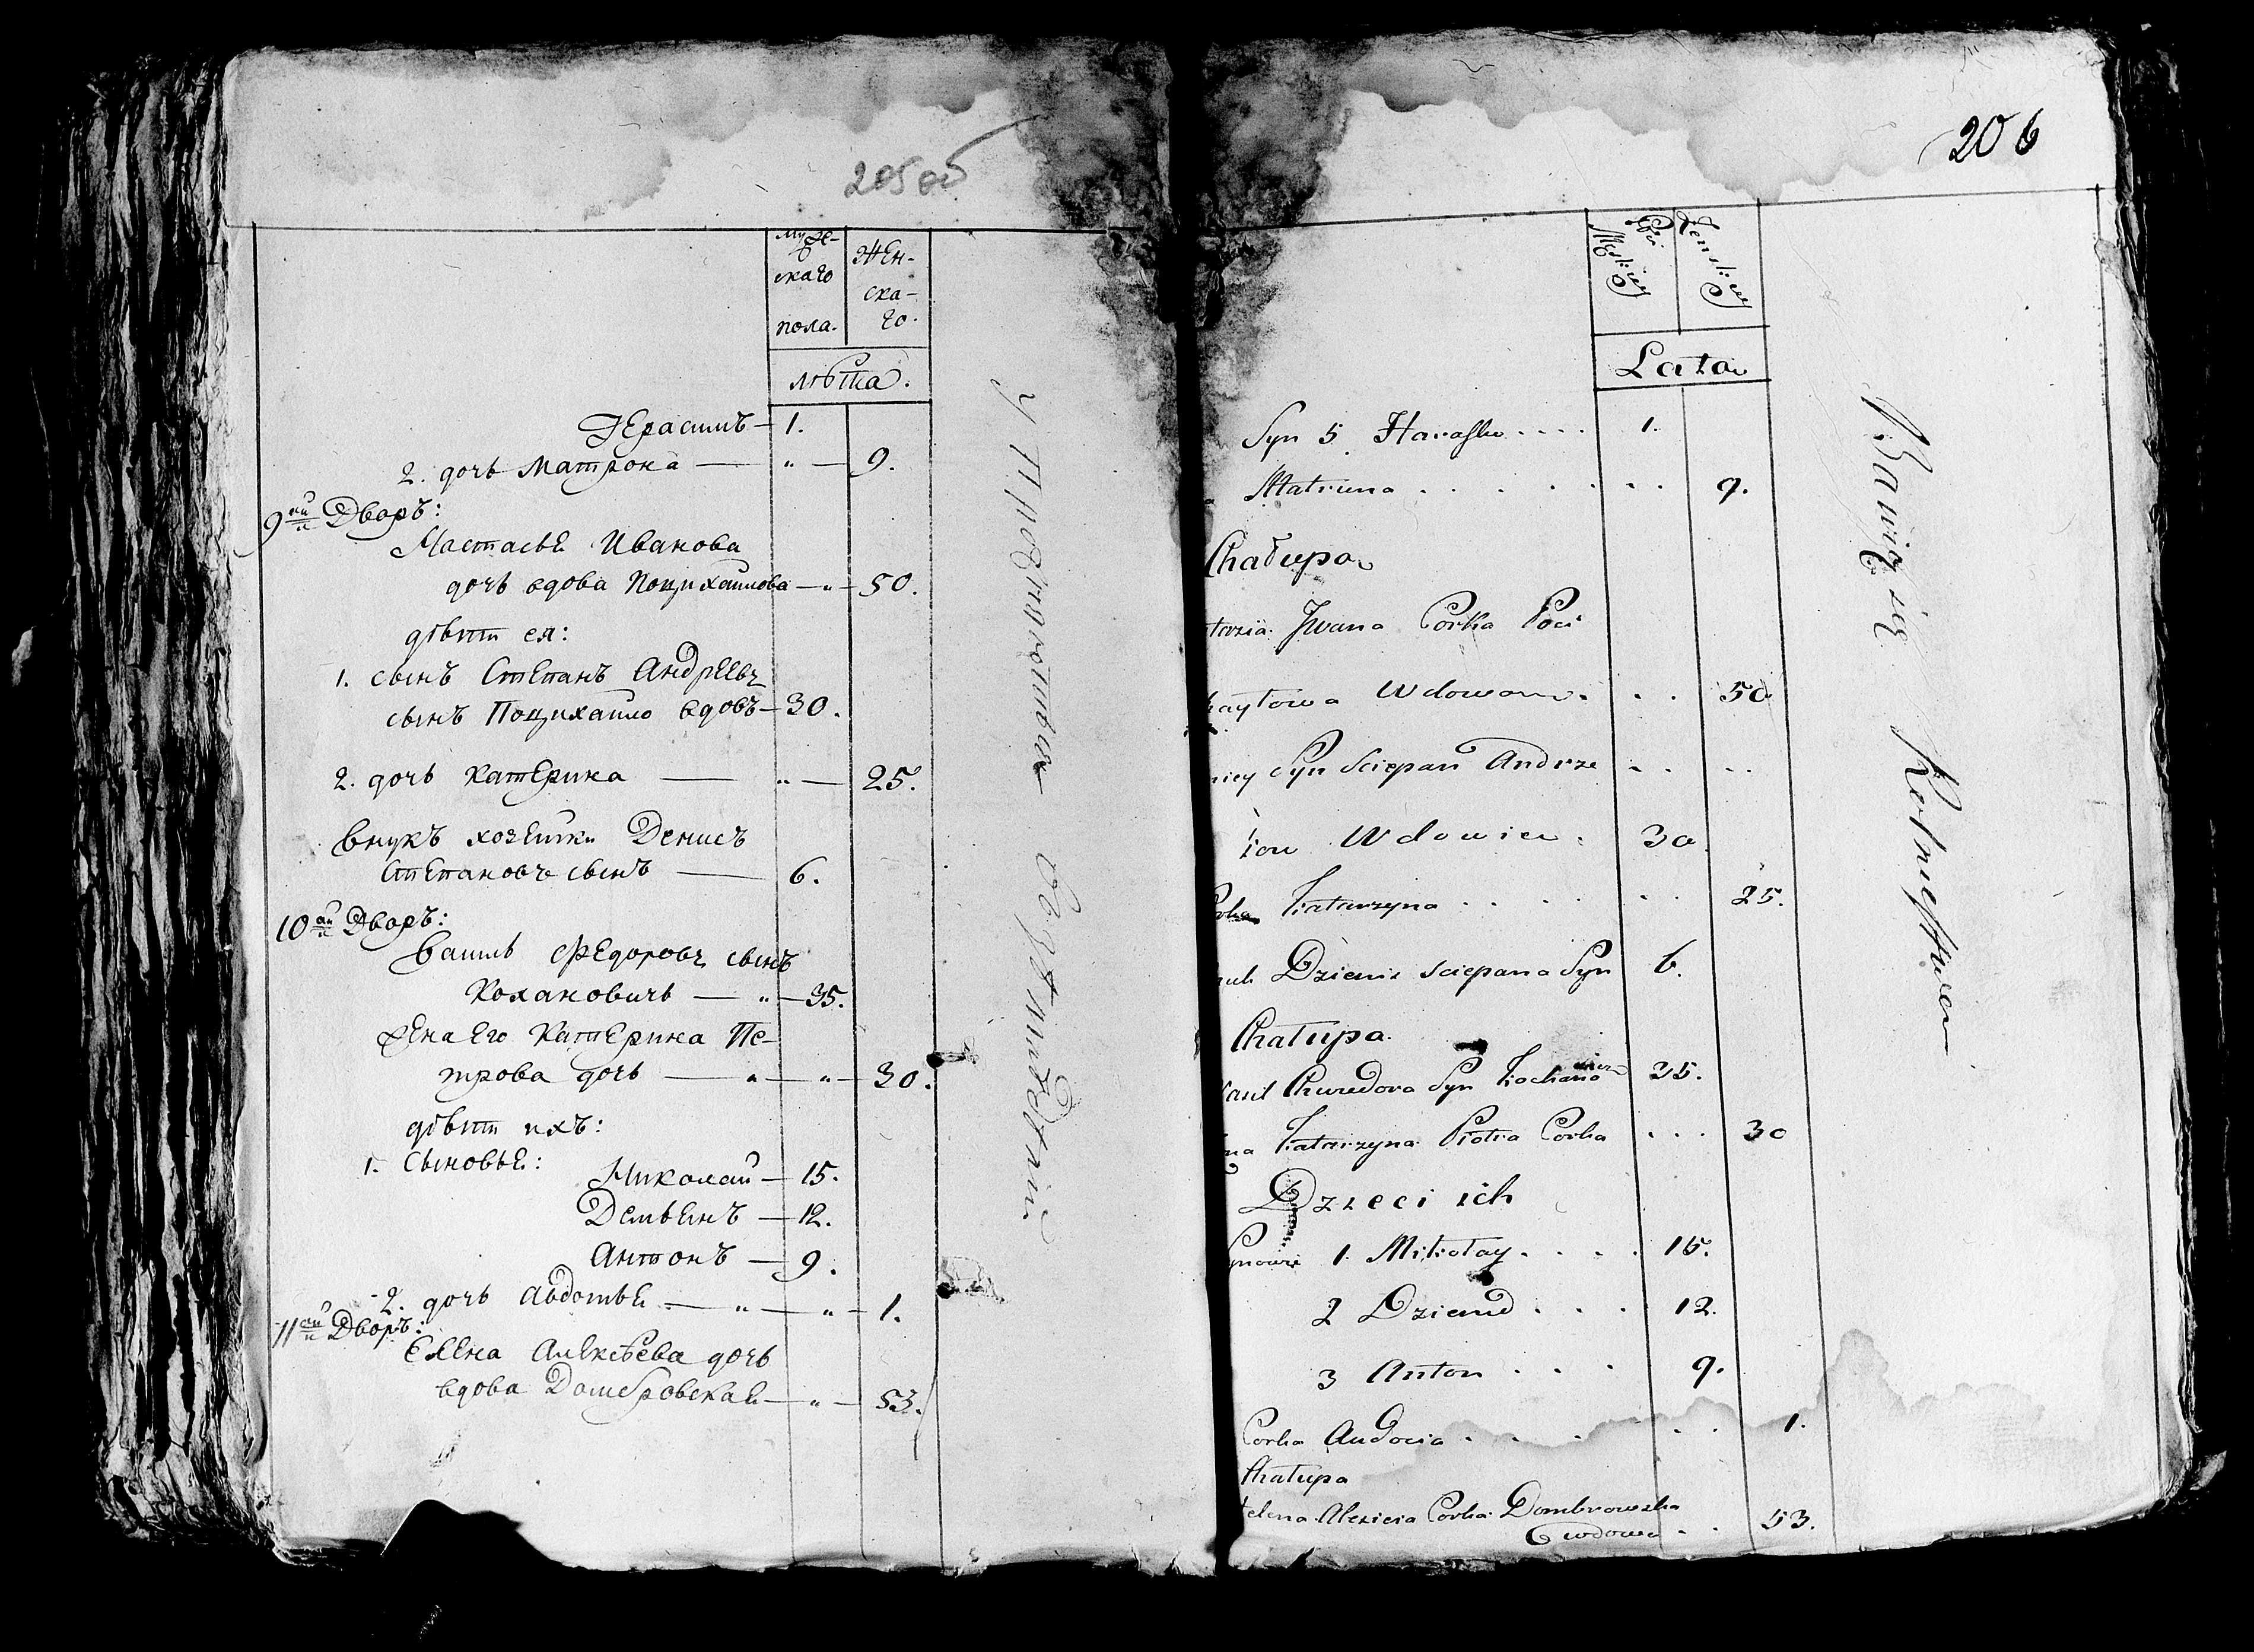 205 об
муже-
скаго
пола.
жен-
ска-
го.
лѣта.
Герасимъ — 1.
2. дочь Матрона — " — 9.
9ый Дворъ:
Настасья Иванова
дочь вдова Поцихайлова — " — 50.
дѣти ея:
1. сынъ Степанъ Андреевъ
сынъ Поцихайло вдовъ — 30.
2. дочь Катерина — " — 25.
Внукъ хозяйки Денисъ
Степановъ сынъ — 6.
10ый Дворъ:
Василь Федоровъ сынъ
Колановичь — " — 35.
жена его Катерина Пе-
трова дочь — " — " — 30.
дѣти ихъ:
1. Сыновья:
Николай — 15.
Демьянъ — 12.
Антонъ — 9.
2. дочь Авдотья — " — " — 1.
11ый Дворъ:
Елена Алексѣева дочь
вдова Домбровская — " — 53.
упражняются въ земледѣліи
206
Płci
Męskiey
Żeńskiey
Lata
Syn 5 Harasko .... 1.
Matruna . . . . . . . . 9.
Chałupa
Iwana Corka Poci
haylowa Wdowa . . . 50
Syn Sciepan Andrze . . . .
iow Wdowiec . 30
Corka Katarzyna . . . . . . 25.
Dzienis Sciepana Syn 6.
Chałupa.
Chwedora Syn Kochanowicz 35.
Katarzyna Piotra Corka . . . 30
Dzieci ich
Synowie 1. Mikołay . . . . 15.
2 Dziemid . . . . 12.
3 Anton . . . 9.
Corka Audocia . . . . . 1.
Chałupa
Helena Alexieia Corka Dombrowska
wdowa . . 53.
Bawią się Rolnictwem